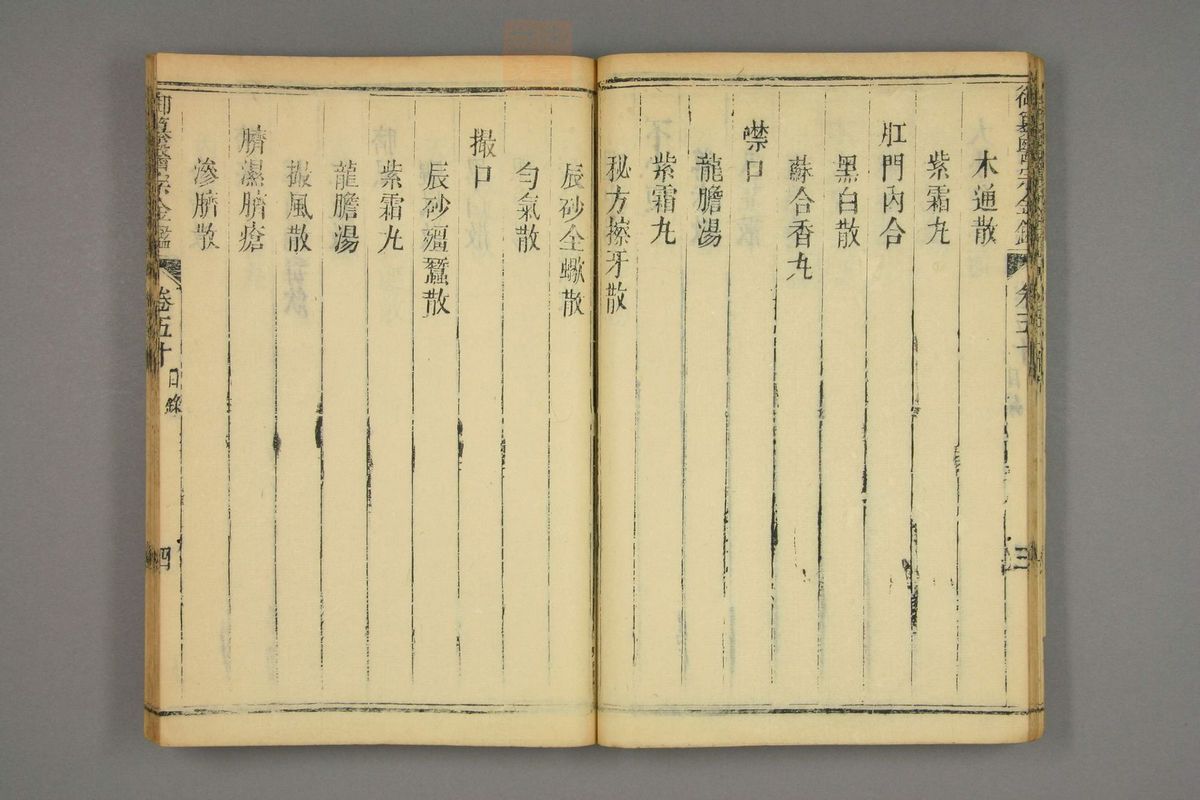 木通散
紫霜丸
肛門內合
黑白散
蘇合香丸
噤口
龍膽湯
紫霜丸
秘方擦牙散
辰砂全蠍散
勻氣散
撮口
辰砂殭蠶散
紫霜丸
龍膽湯
撮風散
臍濕臍瘡
滲臍散
御纂醫宗金鑑
卷五十
目錄
四